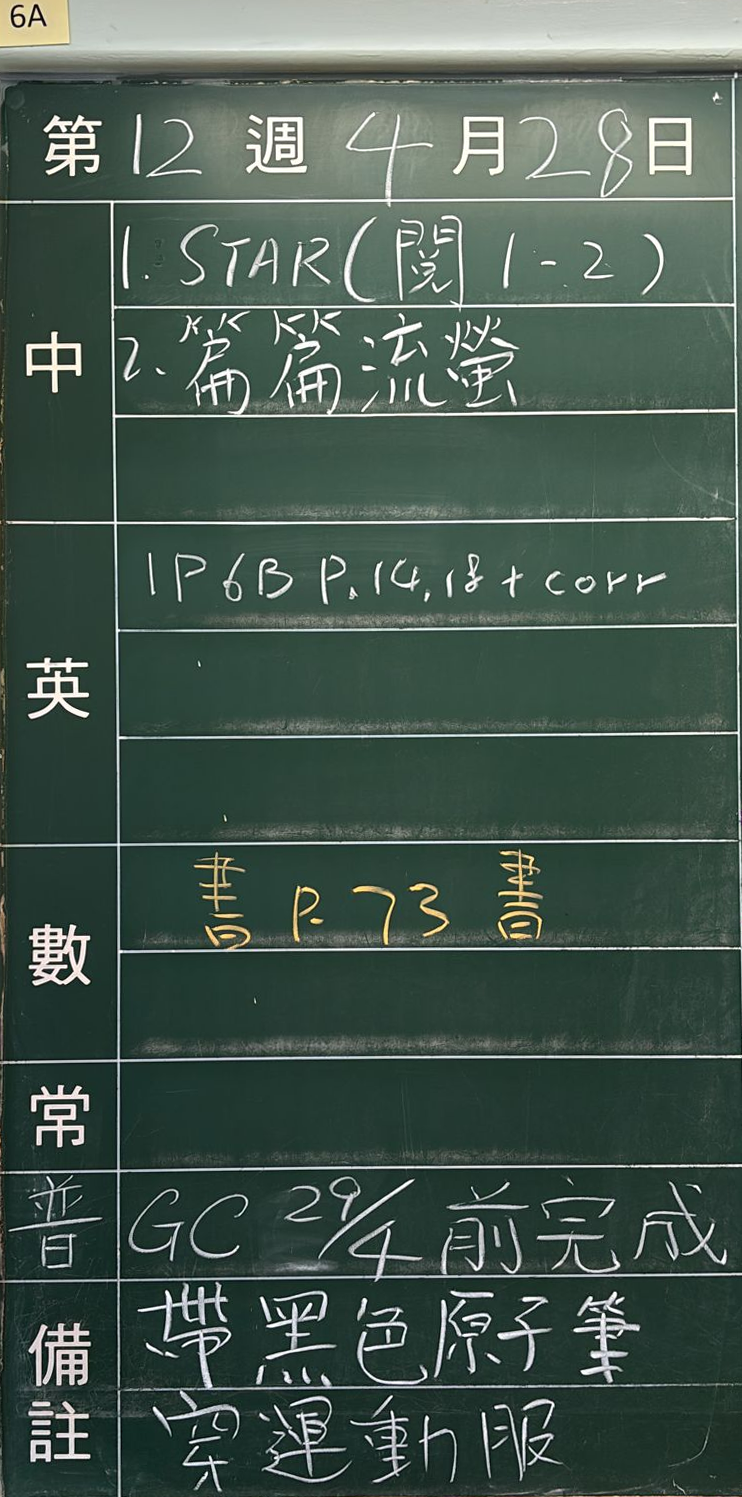 6A
第12週4月28日
中
1. STAR(閱1-2)
2. 篇篇流螢
英
IP6B P.14,18+corr
數
書P.73書
常
普
GC 29/4前完成
備註
帶黑色原子筆
穿運動服